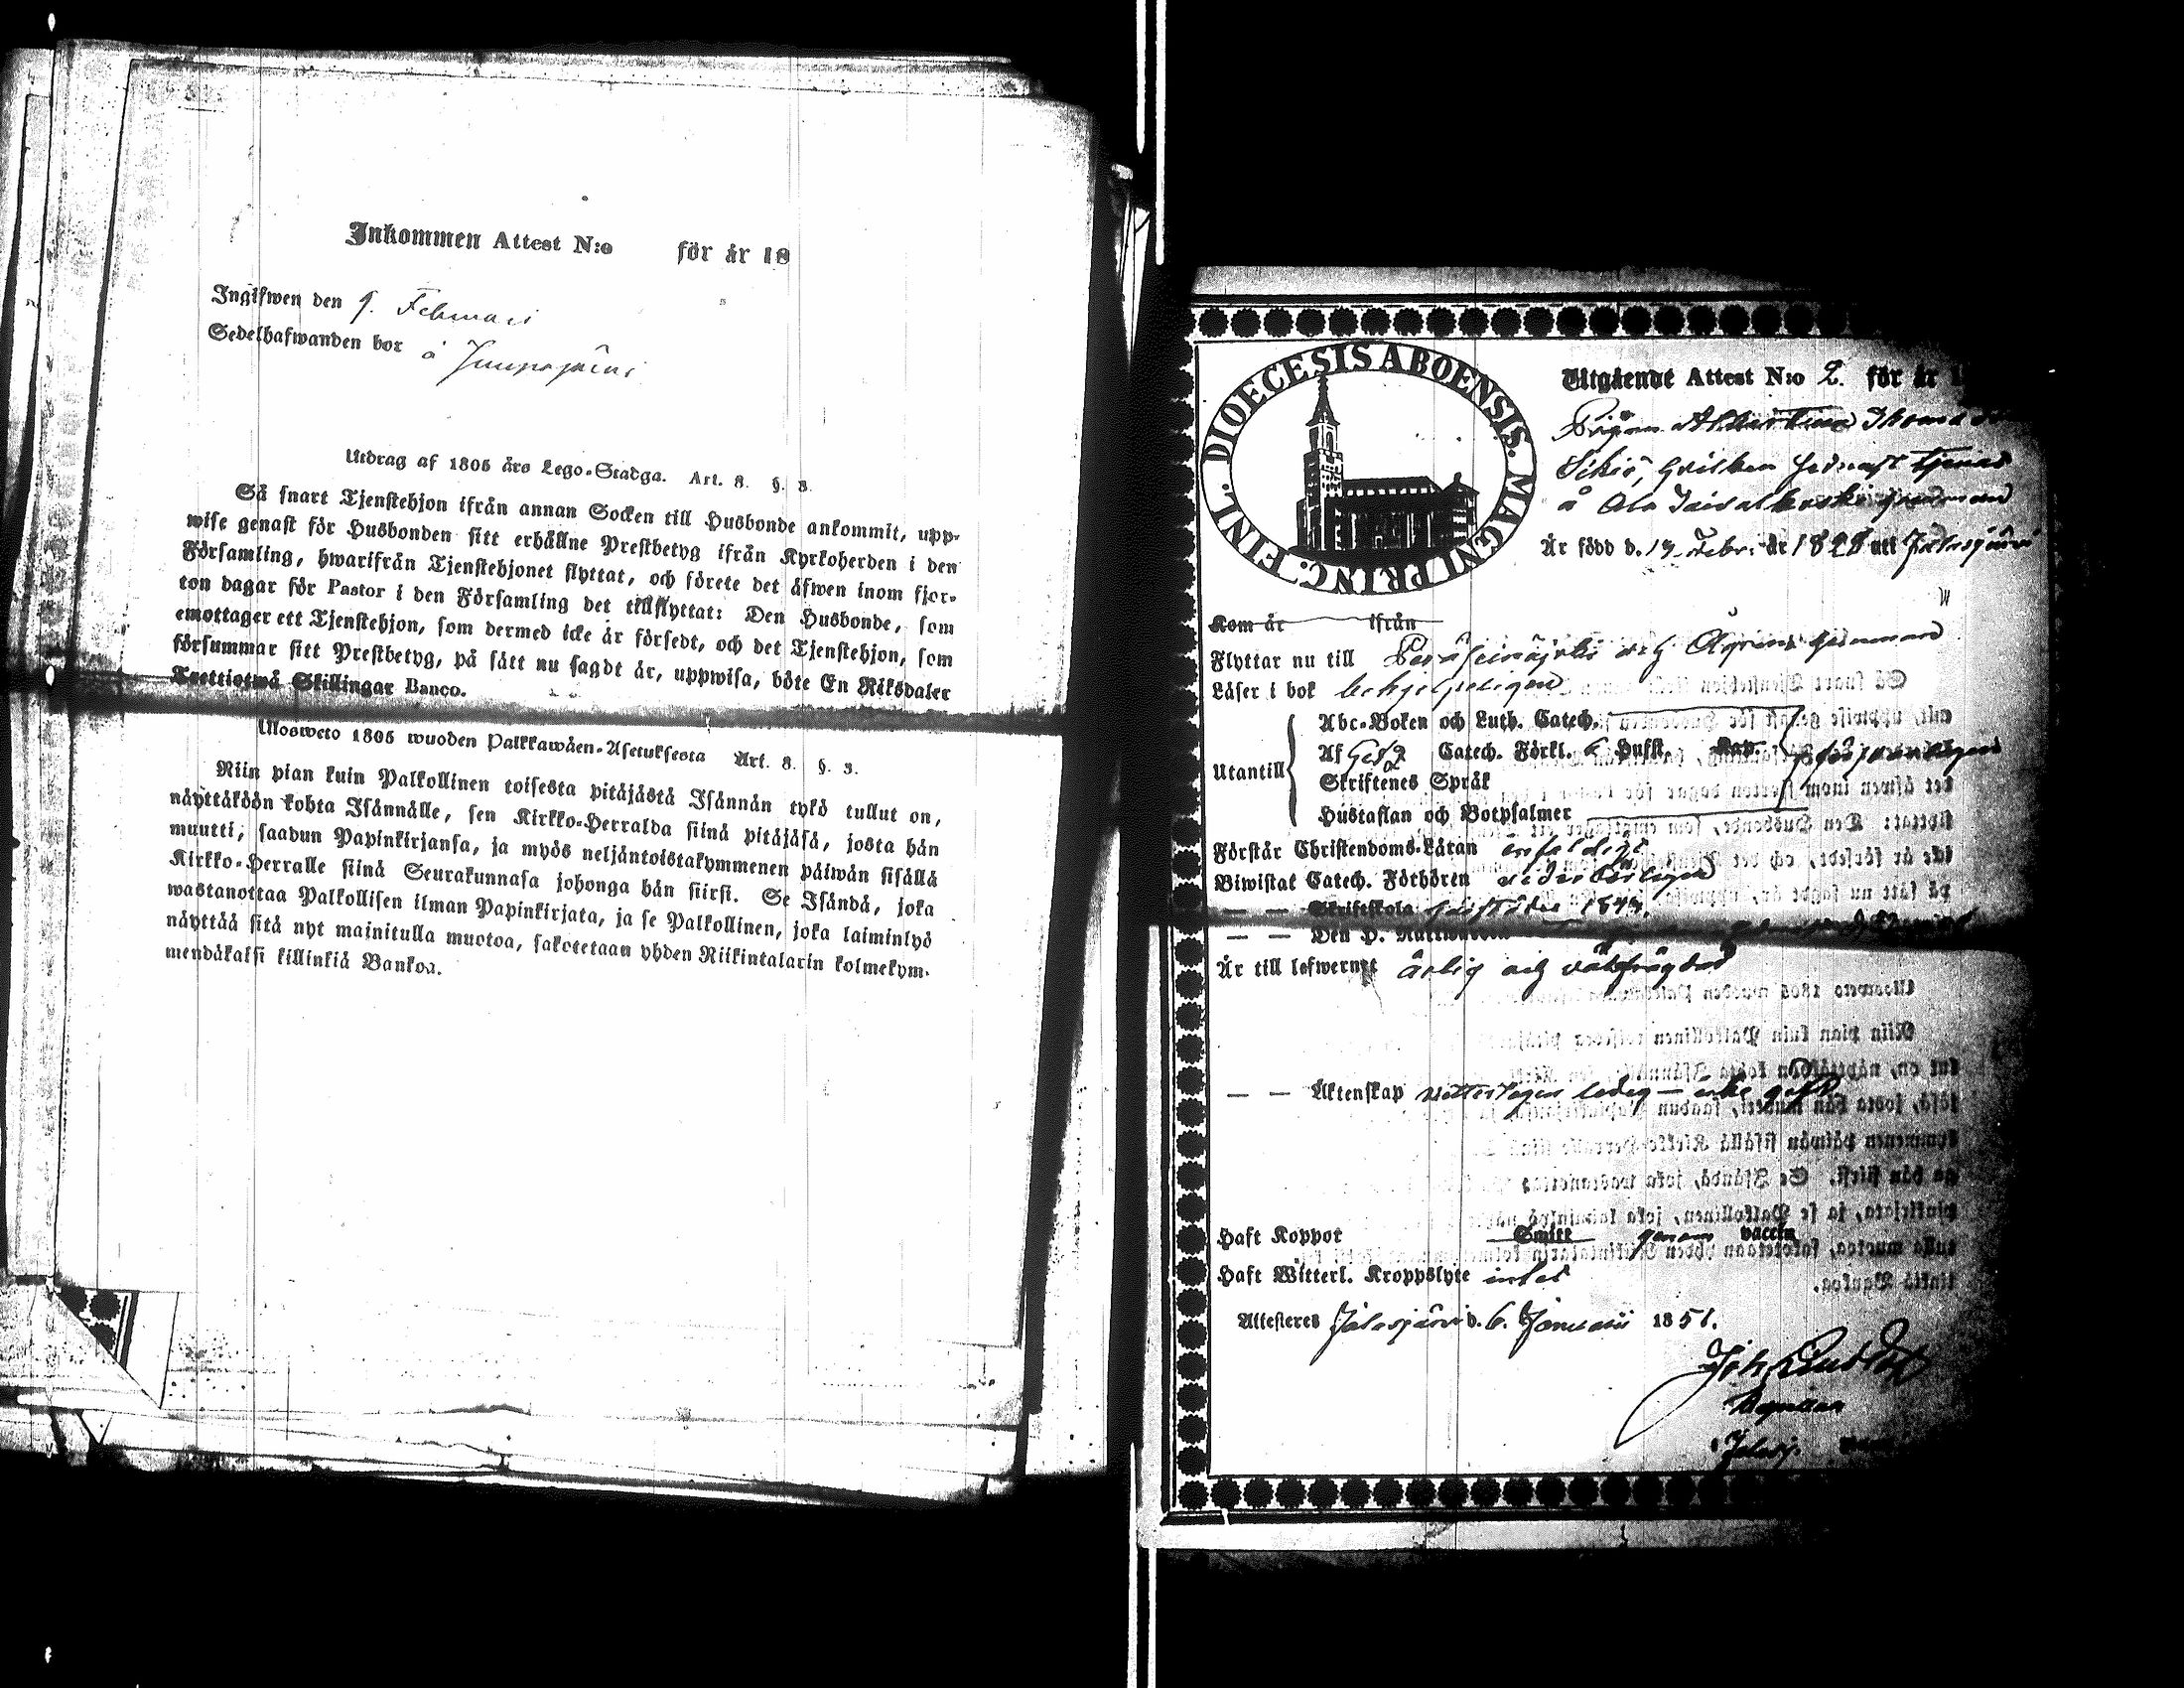 Inkommen Attest N:o för år 18
Ingifwen den 9. Februari
Sedelhafwanden bor å
Utdrag af 1805 års Lego-Stadga. Art. 8. §. 3.
Så snart Tjenstehjon ifrån annan Socken till Husbonde ankommit, upp-
wise genast för Husbonden sitt erhållne Prestbetyg ifrån Kyrkoherden i den
Församling, hwarifrån Tjenstehjonet flyttat, och förete det äfwen inom fjor-
ton dagar för Pastor i den Församling det tillflyttat: Den Husbonde, som
emottager ett Tjenstehjon, som dermed icke är försedt, och det Tjenstehjon, som
försummar sitt Prestbetyg, på sätt nu sagdt är, uppwisa, böte En Riksdaler
Trettiotwå Skillingar Banco.
Ulosweto 1805 wuoden Palkkawäen-Asetuksesta Art. 8. §. 3.
Niin pian kuin Palkollinen toisesta pitäjästä Isännän tykö tullut on,
näyttäköön kohta Isännälle, sen Kirkko-Herralda siinä pitäjäsä, josta hän
muutti, saadun Papinkirjansa, ja myös neljäntoistakymmenen päiwän sisällä
Kirkko-Herralle siinä Seurakunnasa johonga hän siirsi. Se Isändä, joka
wastanottaa Palkollisen ilman Papinkirjata, ja se Palkollinen, joka laiminlyö
näyttää sitä nyt mainitulla muotoa, sakotetaan yhden Riikintalarin kolmekym-
mendäkaksi killinkiä Bankoa.
DIOECESIS ABOENSIS. MAGNI PRINC. FINL.
Utgående Attest N:o 2. för år 1
Pigan
hvilken sednast tjenat
å Ala
Är född d. 13 Febr. år 1828 att Jalasjärvi
Kom år ifrån
Flyttar nu till Peräseinäjoki och hemman
Läser i bok behjelpeligen
Utantill
Abc-Boken och Luth. Catech.
Af Catech. Förkl. 6 Hufst. Kap.
Skriftenes Språk
Hustaflan och Botpsalmer
försvarligen
Förstår Christendoms-Läran enfaldigt
Biwistat Catech. Förhören vederbörligen
— — Skriftskola
— — Den H. Nattwarden
Är till lefwernet ärlig och välfrägdad
— — Äktenskap vetterligen ledig — icke gift
Haft Koppor Smitt genom vaccin
Haft Witterl. Kroppslyte intet
Attesteres Jalasjärvi d. 6. Januarii 1851.
Joh.